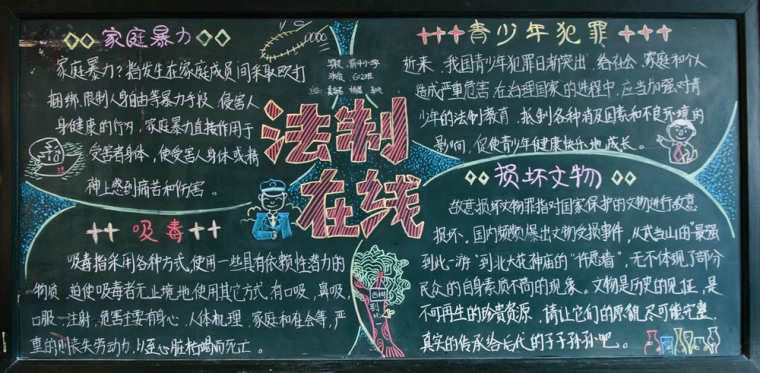 家庭暴力
家庭暴力？指发生在家庭成员间采取殴打
捆绑.限制人身自由等暴力手段.侵害人
身健康的行为.家庭暴力直接作用于
受害者身体，使受害人身体或精
神上感到痛苦和伤害。
法制
在线
青少年犯罪
近来.我国青少年犯罪日渐突出.给社会.家庭和个人
造成严重危害.在治理国家的进程中.应当加强对青
少年的法制教育.抵制各种消极因素和不良环境的
影响.促使青少年健康快乐地成长。
吸毒
吸毒指采用各种方式，使用一些具有依赖性潜力的
物质.迫使吸毒者无止境地使用其它方式.有口吸.鼻吸.
口服.注射.危害主要有身心.人体机理.家庭和社会等，严
重的则丧失劳动力，以至心脏枯竭而死亡。
损坏文物
故意损坏文物罪指对国家保护的文物进行故意
损坏.国内频频爆出文物受损事件，从武当山的"最强
到此一游"到北大花神庙的"许愿者"，无不体现了部分
民众的自身素质不同的现象。文物是历史的见证，是
不可再生的珍贵资源，请让它们的原貌尽可能完整.
真实的传承给后代的子子孙孙吧。